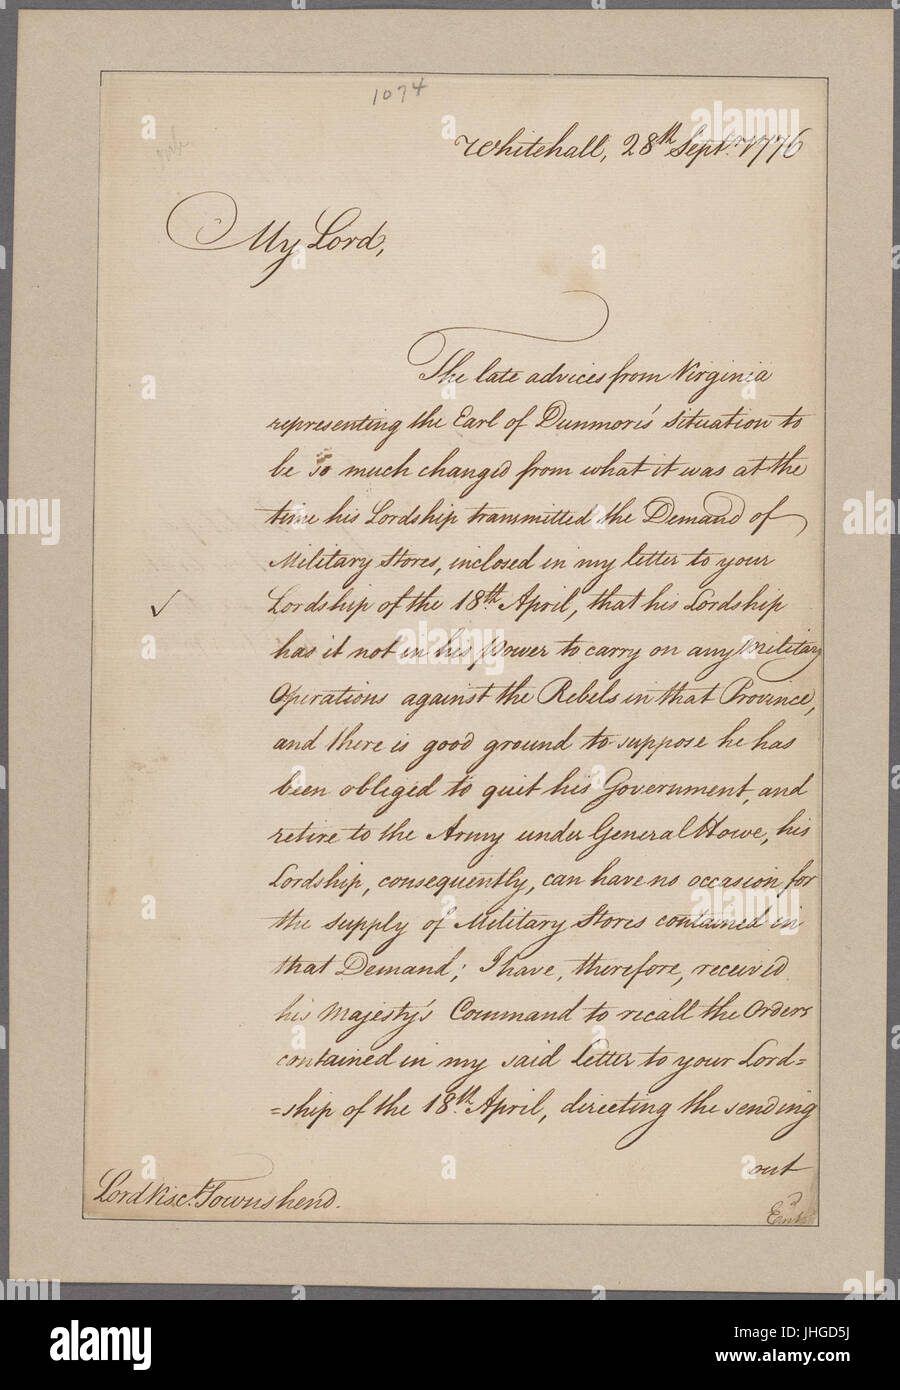 1074
Whitehall, 28th Septr. 1776
My Lord,
The late advices from Virginia
representing the Earl of Dunmore's situation to
be so much changed from what it was at the
time his Lordship transmitted the Demand of
Military Stores, inclosed in my letter to your
Lordship of the 18th April, that his Lordship
has it not in his power to carry on any Military
Operations against the Rebels in that Province,
and there is good ground to suppose he has
been obliged to quit his Government, and
retire to the Army under General Howe, his
Lordship, consequently, can have no occasion for
the supply of Military Stores contained in
that Demand; I have, therefore, received
his Majesty's Command to recall the Orders
contained in my said letter to your Lord=
=ship of the 18th April, directing the sending
out
Lord Visct. Townshend.
alamy stock photo
alamy
www.alamy.com
Image ID: JHGD5J